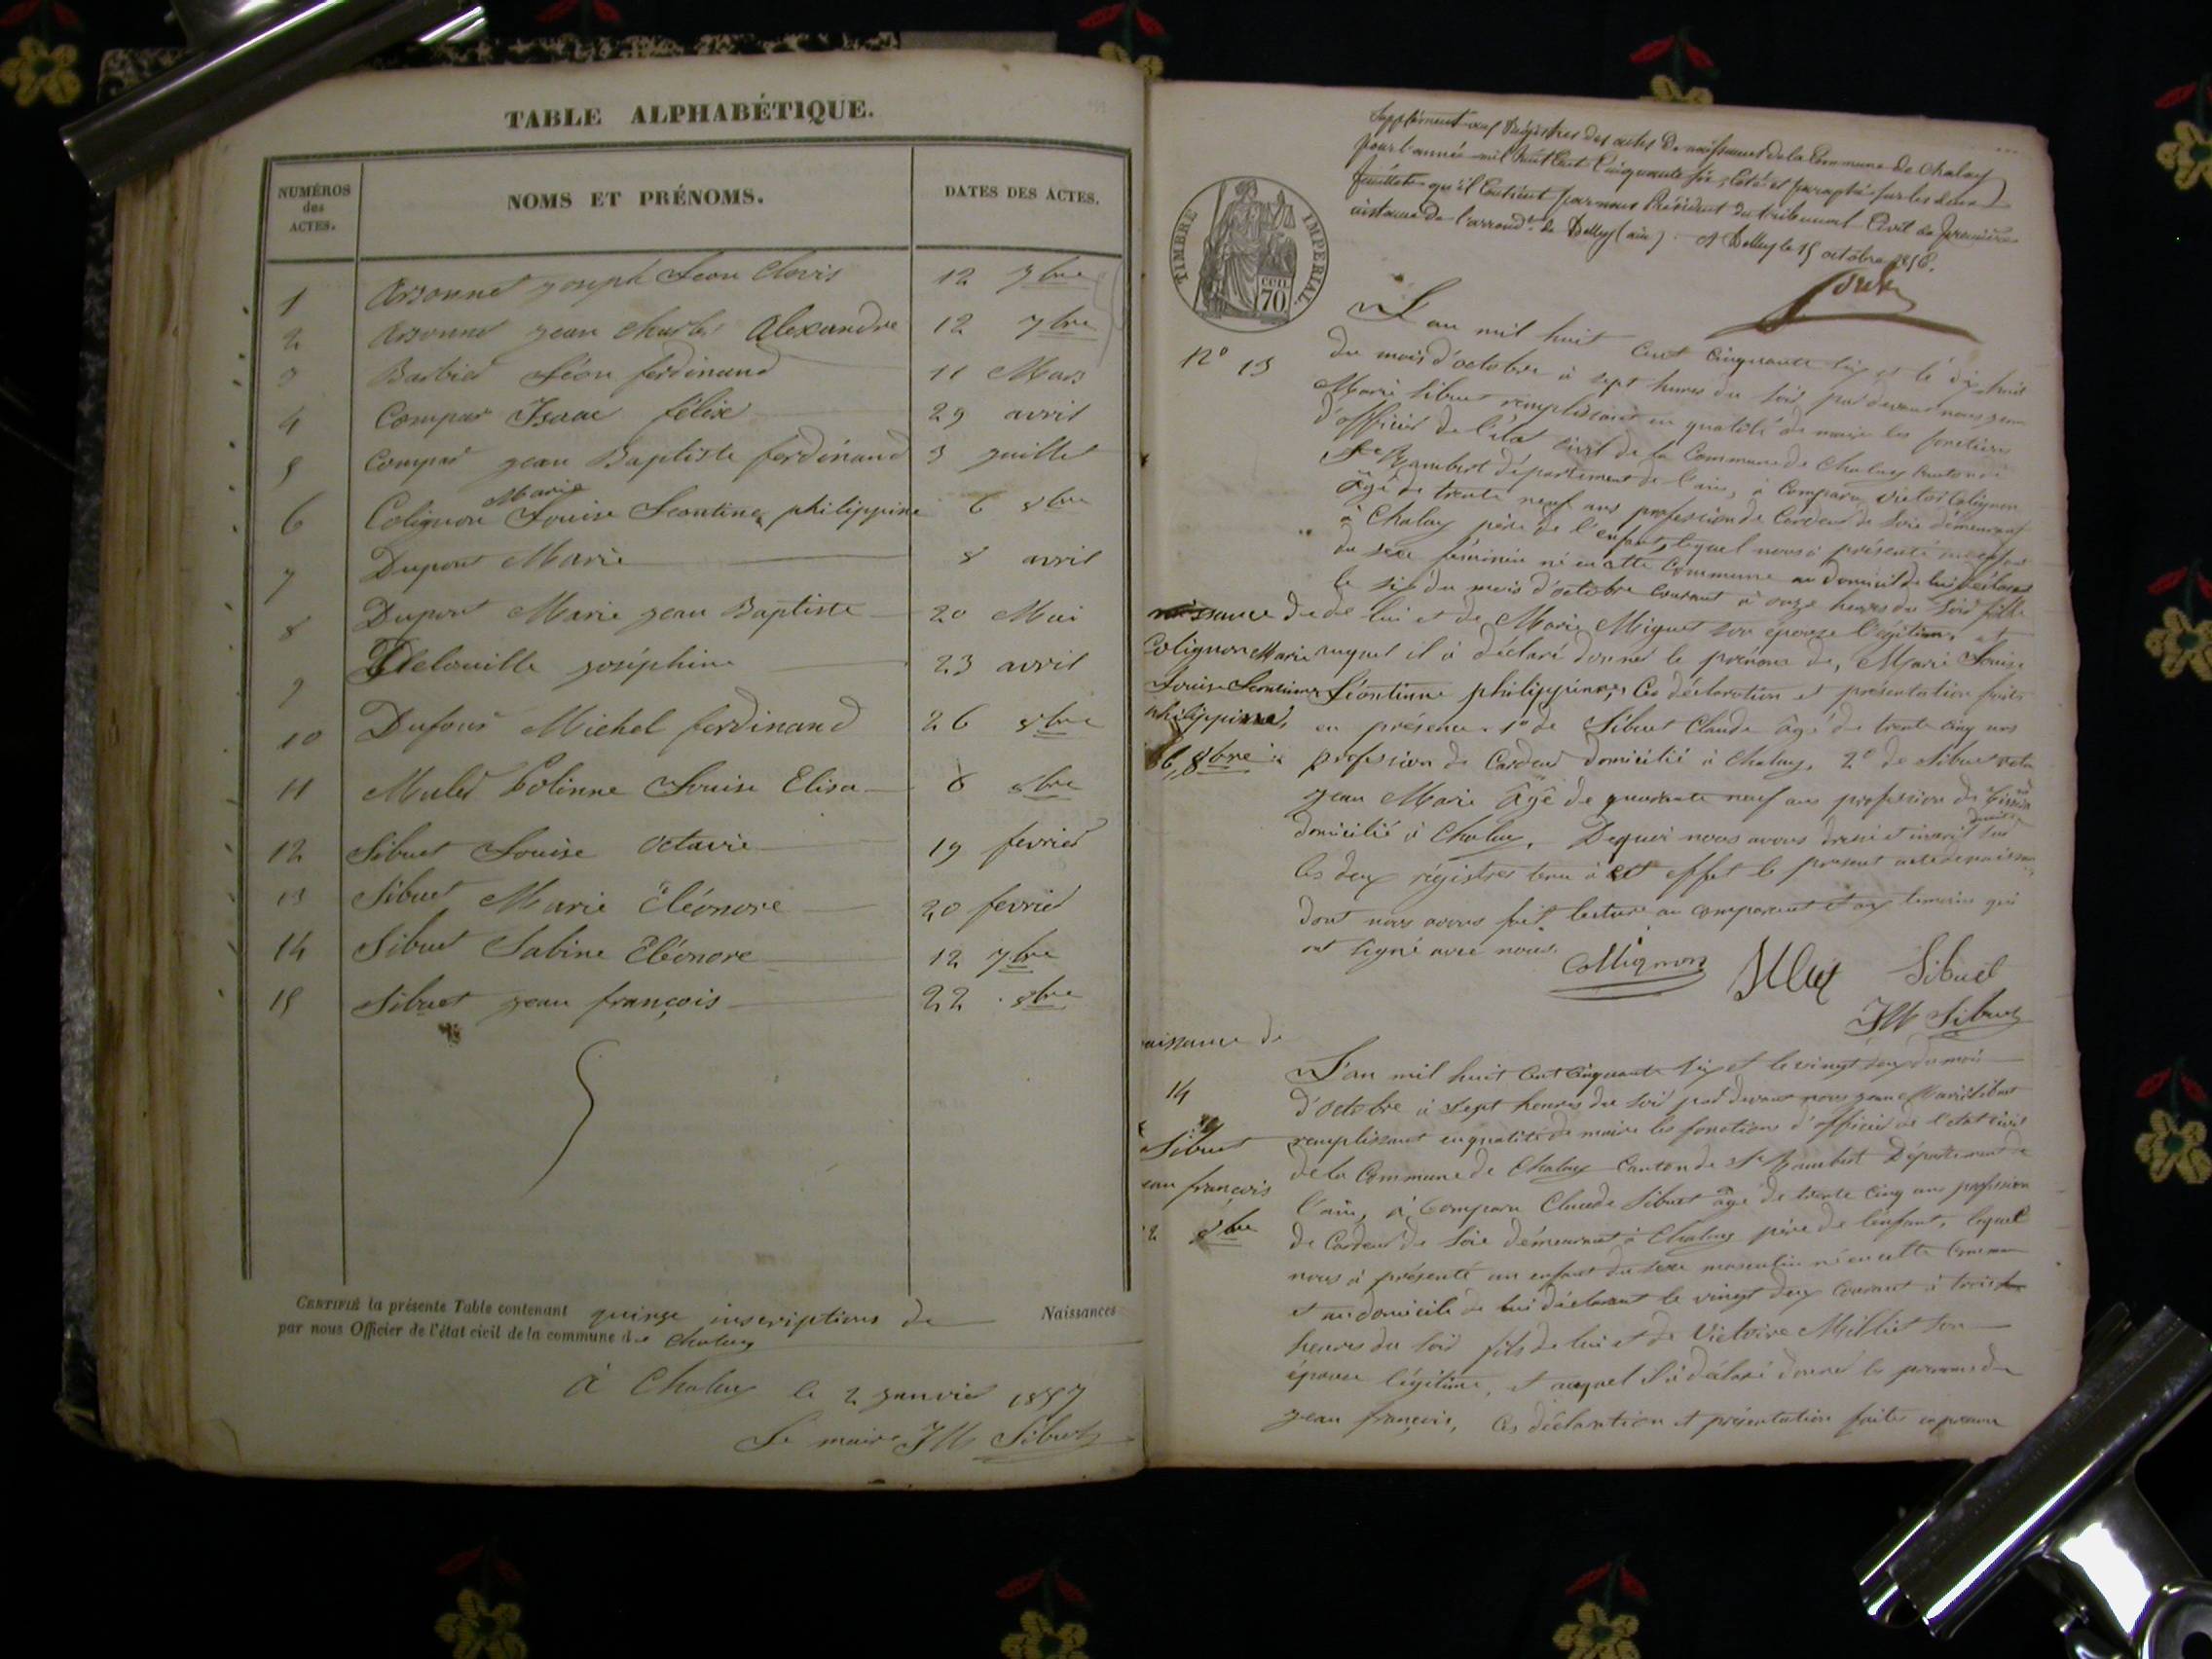 TABLE ALPHABÉTIQUE.
NUMÉROS des ACTES. NOMS ET PRÉNOMS. DATES DES ACTES.
1 joseph Leon Clovis 12 7bre
2 jean Charles Alexandre 12 7bre
3 Barbier Léon ferdinand 11 Mars
4 Compar Isaac félix 29 avril
5 Compar jean Baptiste ferdinand 3 juillet
6 Colignon Marie Louise Leontine philippine 6 8bre
7 Dupont Marie 8 avril
8 Dupont Marie jean Baptiste 20 Mai
9 joséphine 23 avril
10 Dufour Michel ferdinand 26 8bre
11 Louise Elisa 6 8bre
12 Sibuet Louise Octavie 19 fevrier
13 Sibuet Marie Eléonore 20 fevrier
14 Sibuet Sabine Eléonore 12 7bre
15 Sibuet jean françois 22 8bre
CERTIFIÉ la présente Table contenant quinze inscriptions de Naissances
par nous Officier de l'état civil de la commune de Chaley
à Chaley le 2 janvier 1857
Le maire JM Sibuet
Supplément aux Régistres des actes de naissances de la Commune de Chaley
pour l'année mil huit Cent Cinquante six, Coté et paraphé sur les deux
feuillets qu'il Contient par nous Président du tribunal Civil de première
instance de l'arrond.t de Belley (ain). A Belley le 15 octobre 1856.
TIMBRE IMPERIAL.
CEN. 70
N° 13
L'an mil huit Cent Cinquante six et le dix huit
du mois d'octobre à sept heures du soir par devant nous jean
Marie Sibuet remplissant en qualité de maire les fonctions
d'officier de l'état civil de la Commune de Chaley Canton de
St Rambert département de l'ain, à Comparu victor Colignon
âgé de trente neuf ans profession de Cardeur de soie démeurant
à Chaley père de l'enfant, lequel nous à présenté un enfant
du sexe féminin né en cette Commune au domicile de lui déclarant
le six du mois d'octobre Courant à onze heures du soir fille
naissance de
Colignon Marie
Louise Leontine
philippine,
6, 8bre
de lui et de Marie Miguet son épouse légitime, et
auquel il à déclaré donner le prénoms de, Marie Louise
Léontinne philippinne, Ces déclaration et présentation faites
en présence 1° de Sibuet Claude âgé de trente cinq ans
profession de Cardeur domicilié à Chaley, 2° de Sibuet
jean Marie âgé de quarante neuf ans profession de
domicilié à Chaley, Dequoi nous avons dressé et inscrit sur
les deux régistres tenu à cet effet le present acte de naissance
dont nous avons fait lecture au comparant et aux temoins qui
ont signé avec nous.
Collignon Sibuet
JM Sibuet
naissance de
14
Sibuet
jean françois
22 8bre
L'an mil huit Cent Cinquante six et le vingt deux du mois
d'octobre à sept heures du soir par devant nous jean Marie Sibuet
remplissant en qualité de maire les fonctions d'officier de l'état civil
de la Commune de Chaley Canton de St Rambert Département de
l'ain, à Comparu Claude Sibuet âgé de trente cinq ans profession
de Cardeur de soie démeurant à Chaley père de l'enfant, lequel
nous à présenté un enfant du sexe masculin né en cette Commune
et au domicile de lui déclarant le vingt deux Courant à trois
heures du soir fils de lui et de Victoire Milliet son
épouse légitime, et auquel il à déclaré donner les prenoms de
jean françois, Ces déclaration et présentation faites en présence